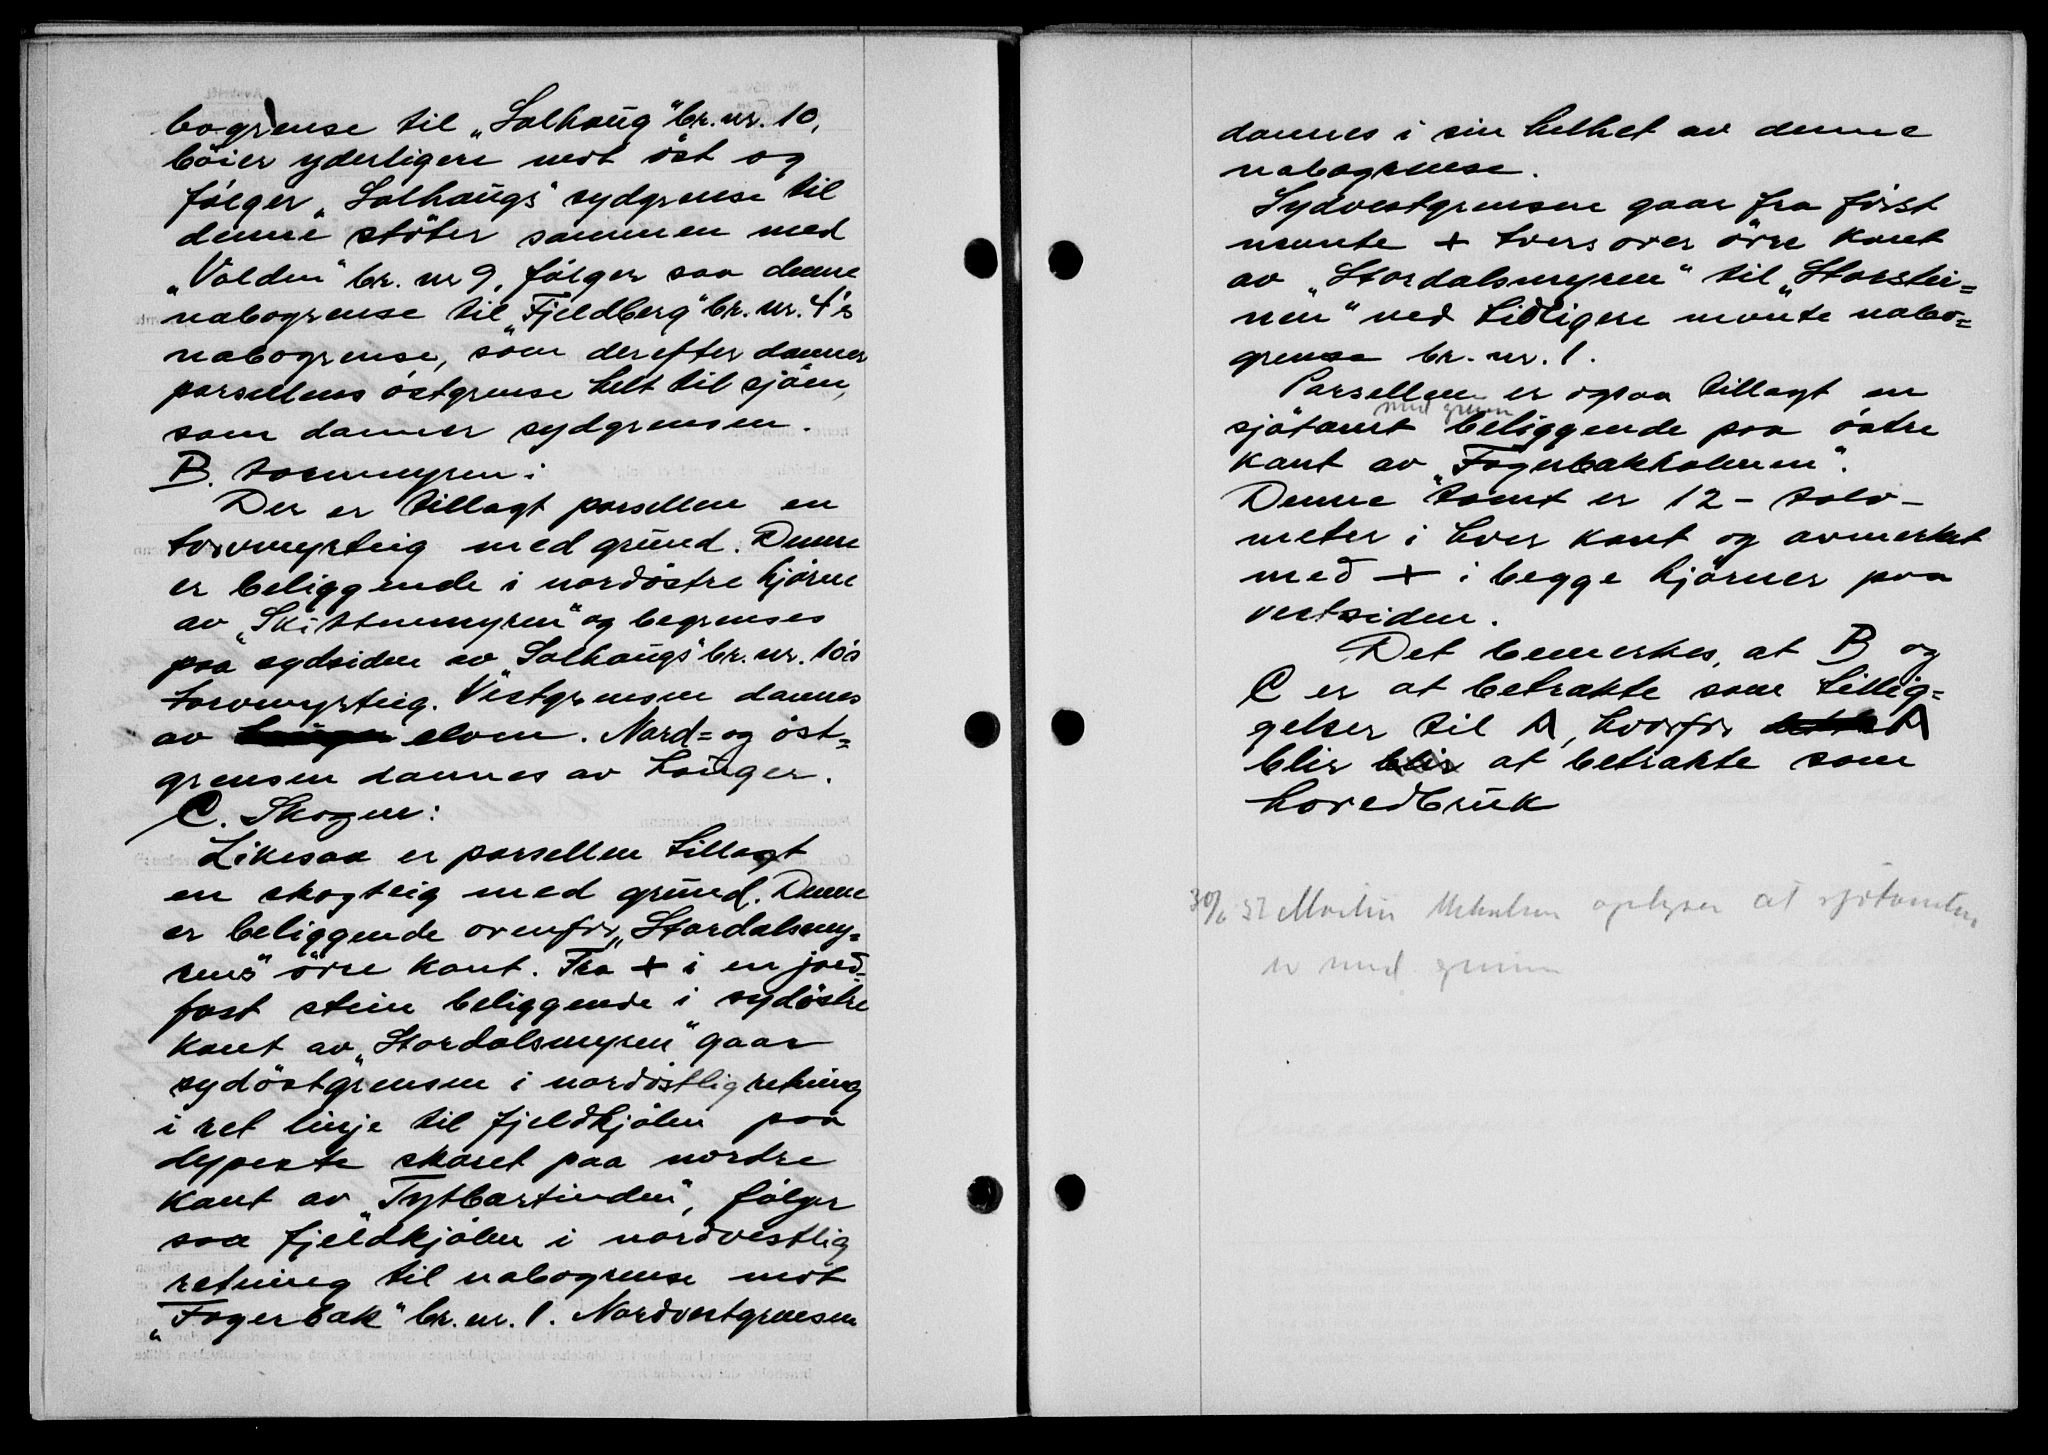 bogrense til „Solhaug" br. nr. 10,
böier yderligere mot öst og
følger „Solhaugs" sydgrense til
denne stöter sammen med
„Volden" br. nr 9, følger saa denne
nabogrense til „Fjeldberg" br. nr. 4's
nabogrense, som derefter danner
parsellens östgrense helt til sjöen,
som danner sydgrensen.
B. Torvmyren:
Der er tillagt parsellen en
torvmyrteig med grund. Denne
er beliggende i nordöstre hjörne
av „Skittenmyren" og begrenses
paa sydsiden av „Solhaugs" br. nr. 10's
torvmyrteig. Vestgrensen dannes
av elven. Nord= og öst=
grensen dannes av hauger.
C. Skogen:
Likesaa er parsellen tillagt
en skogteig med grund. Denne
er beliggende ovenfor „Stordalsmy=
rens" övre kant. Fra + i en jord=
fast stein beliggende i sydöstre
kant av „Stordalsmyren" gaar
sydöstgrensen i nordöstlig retning
i ret linje til fjeldkjölen paa
dypeste skaret paa nordre
kant av „Tytbærtinden", følger
saa fjeldkjölen i nordvestlig
retning til nabogrense mot
„Fagerbak" br. nr. 1. Nordvestgrensen
dannes i sin helhet av denne
nabogrense.
Sydvestgrensen gaar fra först
nevnte + tvers over övre kant
av „Stordalsmyren" til „Storstei=
nen" ved tidligere nevnte nabo=
grense br. nr. 1.
Parsellen er ogsaa tillagt en
med grunn
sjötomt beliggende paa östre
kant av „Fagerbakholmen".
Denne tomt er 12 - tolv -
meter i hver kant og avmerket
med + i begge hjörner paa
vestsiden.
Det bemerkes, at B og
C er at betrakte som tillig=
gelser til A, hvorfor A
blir blir at betrakte som
hovedbruk
30/6 37 Martin oplyser at sjötomten
er med grunn